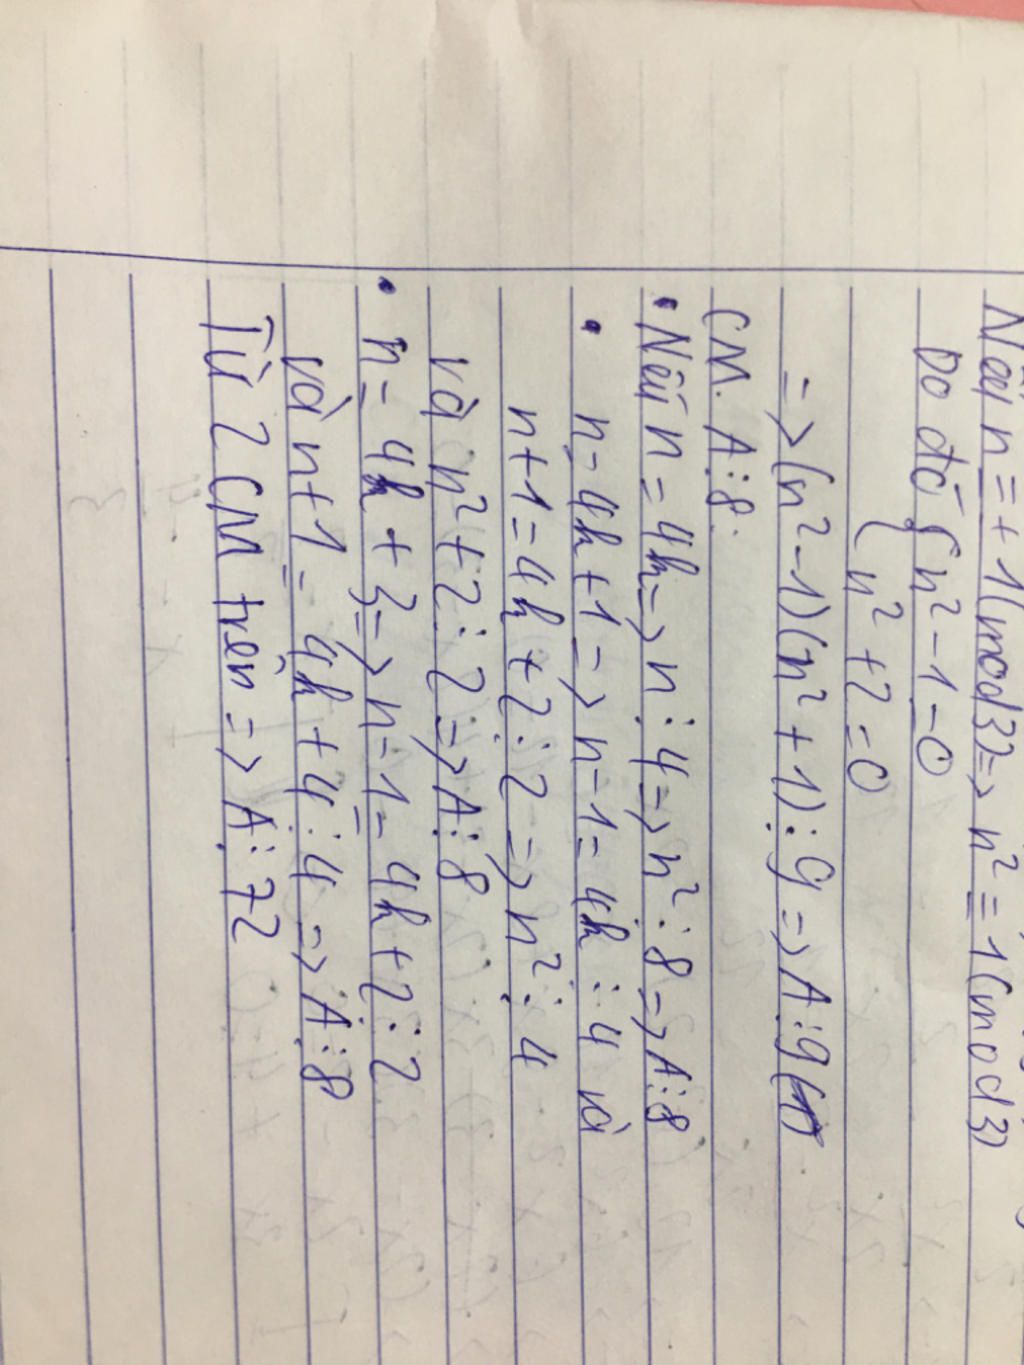 Nếu n = + 1 (mod 3 => n² = 1 (mod 3)
Do đó { n² - 1 = 0
{ n² + 2 = 0
=> (n² - 1)(n² + 1) ⋮ 9 => A ⋮ 9
CM. A ⋮ 8.
• Nếu n = 4k => n ⋮ 4 => n² ⋮ 8 => A ⋮ 8
• n = 4k + 1 => n - 1 = 4k ⋮ 4 và
n + 1 = 4k + 2 ⋮ 2 => n² ⋮ 4
và n² + 2 ⋮ 2 => A ⋮ 8
• n = 4k + 3 => n - 1 = 4k + 2 ⋮ 2
và n + 1 = 4k + 4 ⋮ 4 => A ⋮ 8
Từ 2 CM trên => A ⋮ 72